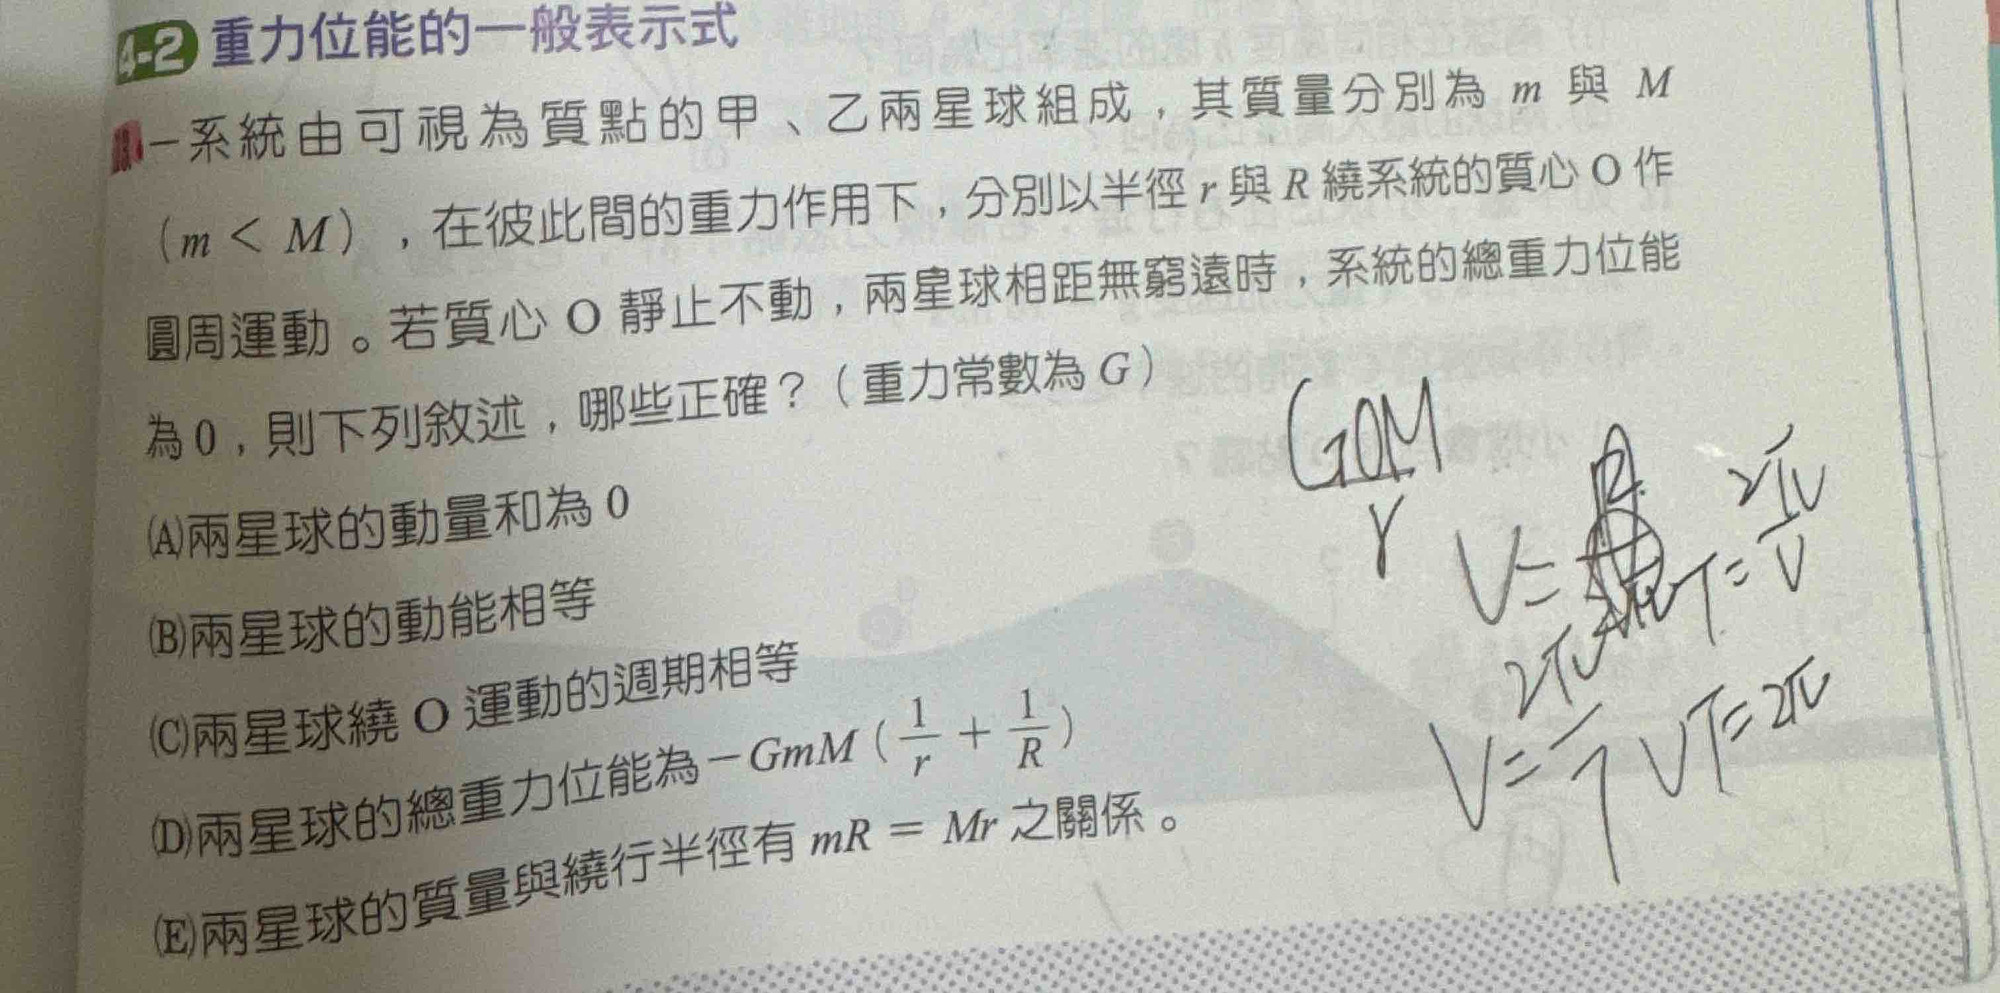 4-2 重力位能的一般表示式
一系統由可視為質點的甲、乙兩星球組成，其質量分別為 m 與 M
（m < M），在彼此間的重力作用下，分別以半徑 r 與 R 繞系統的質心 O 作
圓周運動。若質心 O 靜止不動，兩星球相距無窮遠時，系統的總重力位能
為 0，則下列敘述，哪些正確？（重力常數為 G）
(A)兩星球的動量和為 0
(B)兩星球的動能相等
(C)兩星球繞 O 運動的週期相等
(D)兩星球的總重力位能為 −GmM (1/r + 1/R)
(E)兩星球的質量與繞行半徑有 mR = Mr 之關係。
V=
T= 2π/V
V= 2π/T
VT=2π